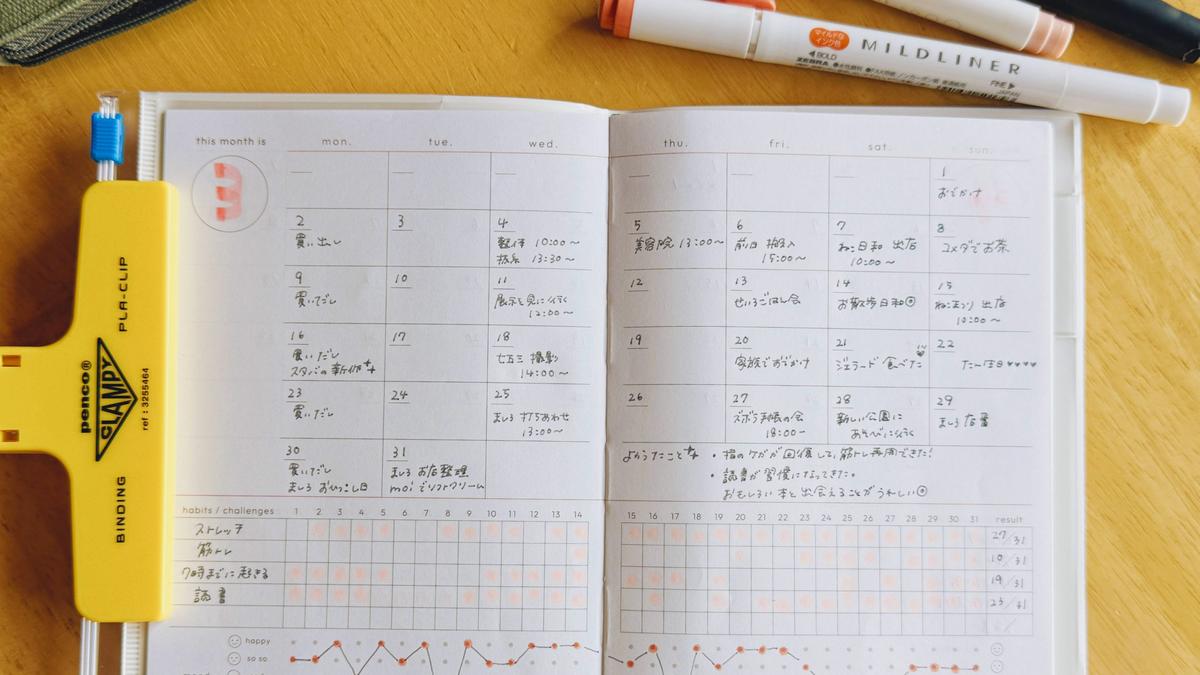 マイルドな
インク色
MILDLINER
BOLD
ZEBRA
FINE
JAPAN
PLA-CLIP
penco®
CLAMPY
ref : 3255464
BINDING
this month is
3
mon. tue. wed. thu. fri. sat. sun.
1
おでかけ
2
買い出し
3
4
10:00〜
13:30〜
5
美容院 13:00〜
6
前日 搬入
15:00〜
7
ねこ日和 出店
10:00〜
8
コメダでお茶
9
買いだし
10
11
展示を見に行く
12:00〜
12
13
せいろごはん会
14
お散歩日和
15
ねこまつり 出店
10:00〜
16
買いだし
スタバの新作
17
18
七五三 撮影
14:00〜
19
20
家族でおでかけ
21
ジェラード 食べた
22
23
買いだし
24
25
ましろ 打ちあわせ
13:00〜
26
27
ズボラ手帳の会
18:00〜
28
新しい公園に
あそびに行く
29
ましろ 店番
30
買いだし
ましろ おひっこし日
31
ましろ お店整理
moiでソフトクリーム
よかったこと
・指のケガが回復して、筋トレ再開できた!
・読書が習慣になってきた。
おもしろい本と出会えることがうれしい
habits / challenges 1 2 3 4 5 6 7 8 9 10 11 12 13 14 15 16 17 18 19 20 21 22 23 24 25 26 27 28 29 30 31 result
ストレッチ 27/31
筋トレ 10/31
7時までに起きる 19/31
読書 23/31
happy
so so